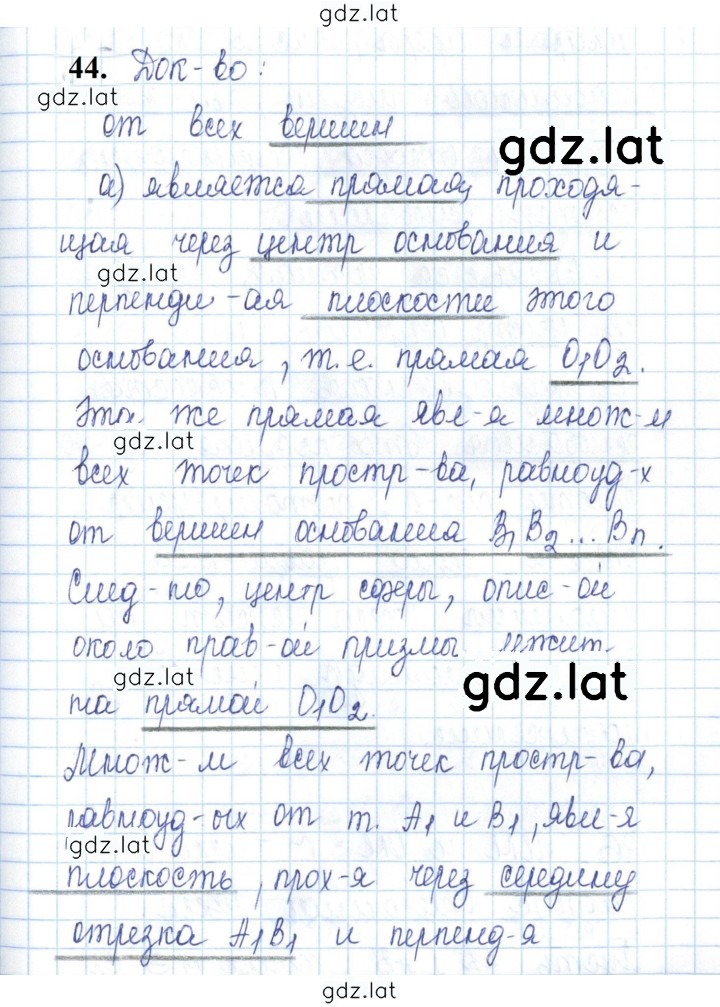 gdz.lat
44. Док-во:
gdz.lat
от всех вершин
gdz.lat
а) является прямая, проходя-
щая через центр основания и
gdz.lat
перпенди-ая плоскости этого
основания, т.е. прямая O₁O₂.
Эта же прямая явл-я множ-м
gdz.lat
всех точек простр-ва, равноуд-х
от вершин основания B₁B₂...Bn.
След-но, центр сферы, опис-ой
около прав-ой призмы лежит
gdz.lat
gdz.lat
на прямой O₁O₂.
Множ-м всех точек простр-ва,
равноуд-ых от т. A₁ и B₁, явл-я
gdz.lat
плоскость, прох-я через середину
отрезка A₁B₁ и перпенд-я
gdz.lat